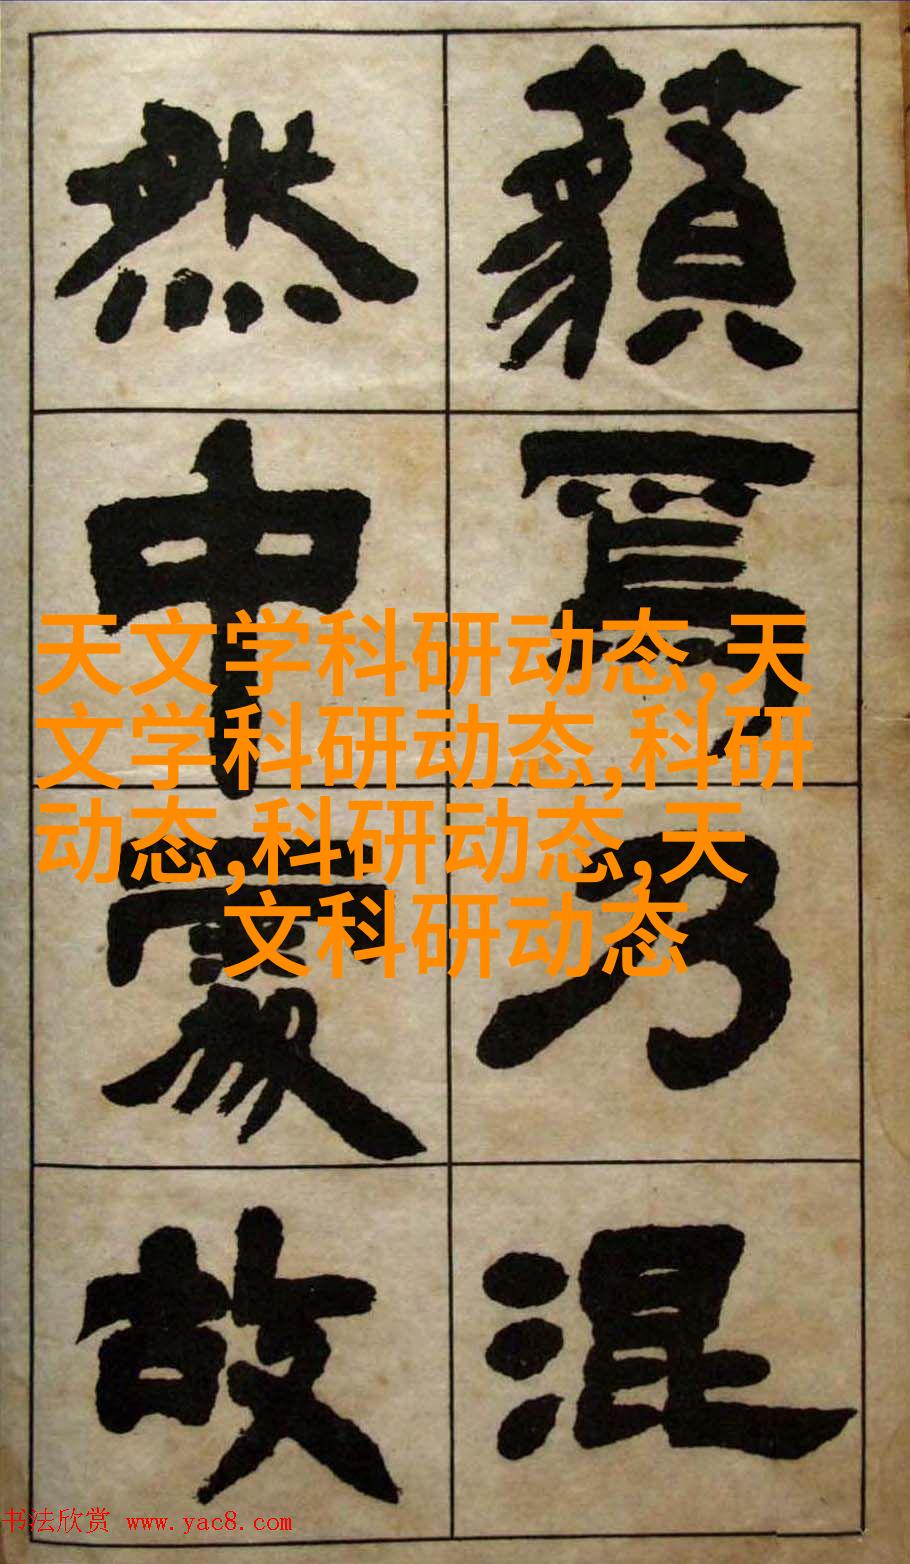 藐焉乃混
然中處故
天文学科研动态,天
文学科研动态,科研
动态,科研动态,天
文科研动态
书法欣赏 www.yac8.com